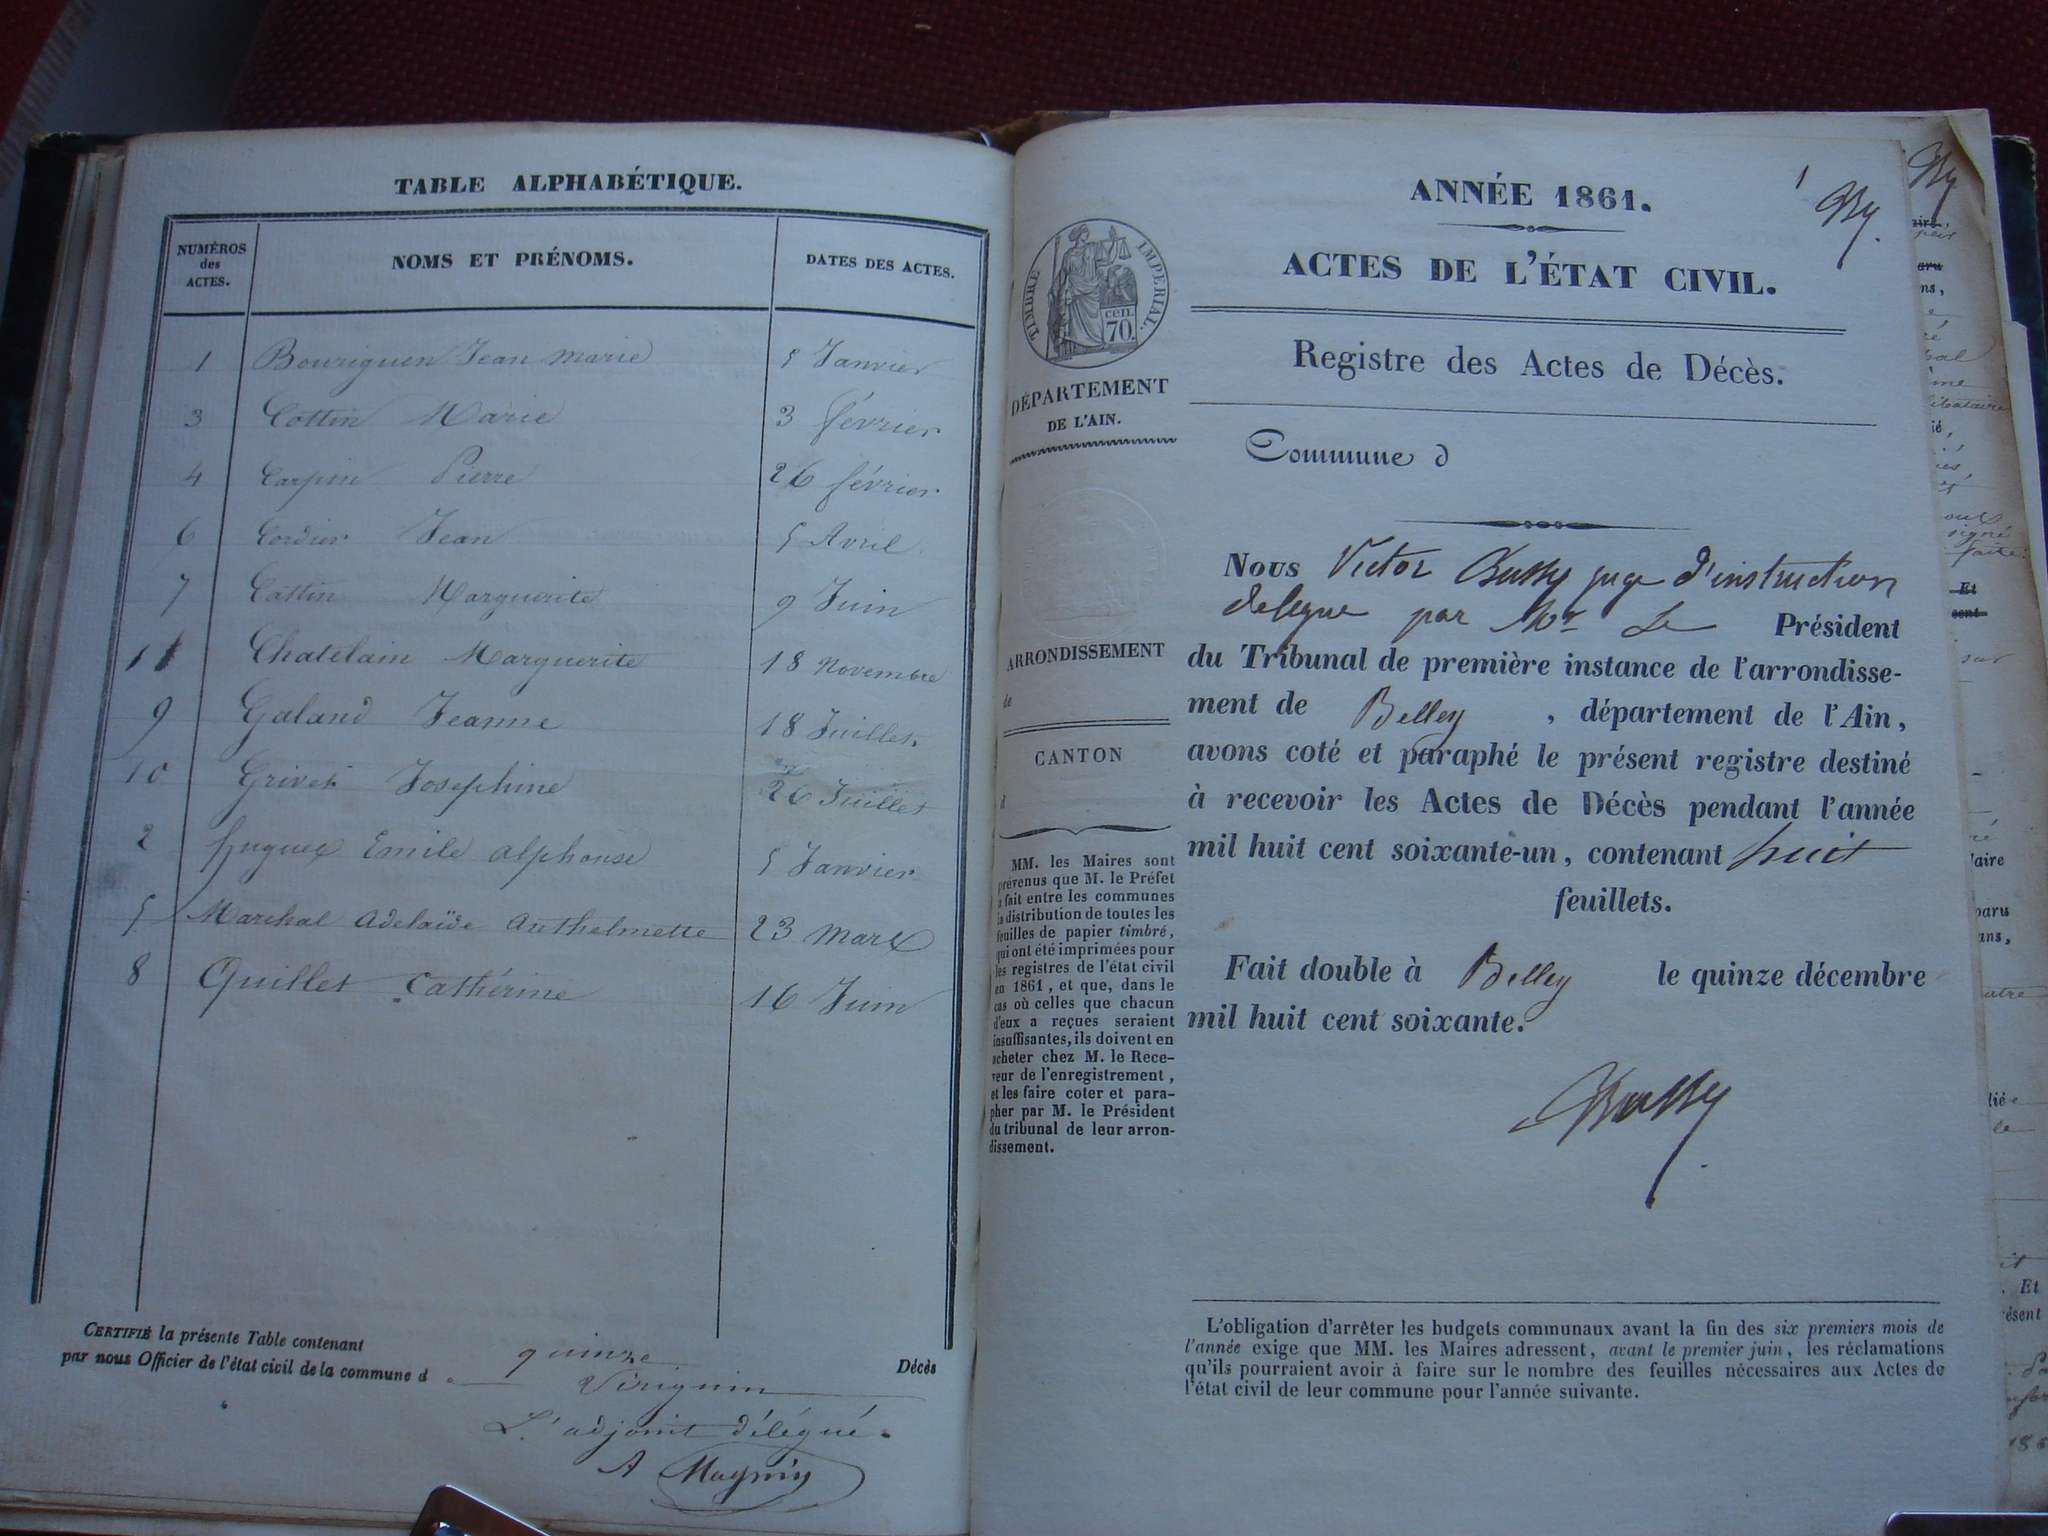 TABLE ALPHABÉTIQUE.
NUMÉROS
des
ACTES.
NOMS ET PRÉNOMS.
DATES DES ACTES.
1 Bouriguen Jean Marie 5 Janvier
3 Cottin Marie 3 février
4 Carpin Pierre 26 février
6 Cordier Jean 5 Avril
7 Cattin Marguerite 9 Juin
11 Chatelain Marguerite 18 Novembre
9 Galand Jeanne 18 Juillet
10 Grivet Josephine 26 Juillet
2 hugues Emile alphonse 5 Janvier
5 Marchal Adelaïde Anthelmette 23 Mars
8 Quillet Cathérine 16 Juin
CERTIFIÉ la présente Table contenant quinze Décès
par nous Officier de l'état civil de la commune d e Virignin
L'adjoint délégué.
A Magnin
ANNÉE 1861.
1
By.
ACTES DE L'ÉTAT CIVIL.
Registre des Actes de Décès.
TIMBRE IMPÉRIAL.
cen.
70.
DÉPARTEMENT
DE L'AIN.
ARRONDISSEMENT
de
CANTON
d
MM. les Maires sont
prévenus que M. le Préfet
a fait entre les communes
la distribution de toutes les
feuilles de papier timbré,
qui ont été imprimées pour
les registres de l'état civil
en 1861, et que, dans le
cas où celles que chacun
d'eux a reçues seraient
insuffisantes, ils doivent en
acheter chez M. le Rece-
veur de l'enregistrement,
et les faire coter et para-
pher par M. le Président
du tribunal de leur arron-
dissement.
Commune d
Nous Victor Bussy juge d'instruction
delegue par Mr Le Président
du Tribunal de première instance de l'arrondisse-
ment de Belley, département de l'Ain,
avons coté et paraphé le présent registre destiné
à recevoir les Actes de Décès pendant l'année
mil huit cent soixante-un, contenant huit
feuillets.
Fait double à Belley le quinze décembre
mil huit cent soixante.
Bussy
L'obligation d'arrêter les budgets communaux avant la fin des six premiers mois de
l'année exige que MM. les Maires adressent, avant le premier juin, les réclamations
qu'ils pourraient avoir à faire sur le nombre des feuilles nécessaires aux Actes de
l'état civil de leur commune pour l'année suivante.